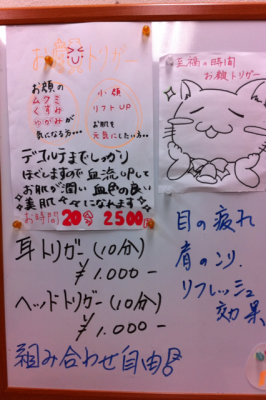 お顔トリガー
お顔の
ムクミ
くすみ
ゆがみが
気になる方…
小顔
リフトUP
お肌を
元気にしたい方…
デコルテまでしっかり
ほぐしますので血流UPして
お肌が潤い血色の良い
美肌になれます
お時間20分2500円
耳トリガー(10分)
¥1.000-
ヘッドトリガー(10分)
¥1.000-
組み合わせ自由
至福の時間
お顔トリガー
目の疲れ
肩のこり.
リフレッシュ
効果